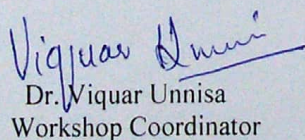 Viquar Unnisa
Dr. Viquar Unnisa
Workshop Coordinator